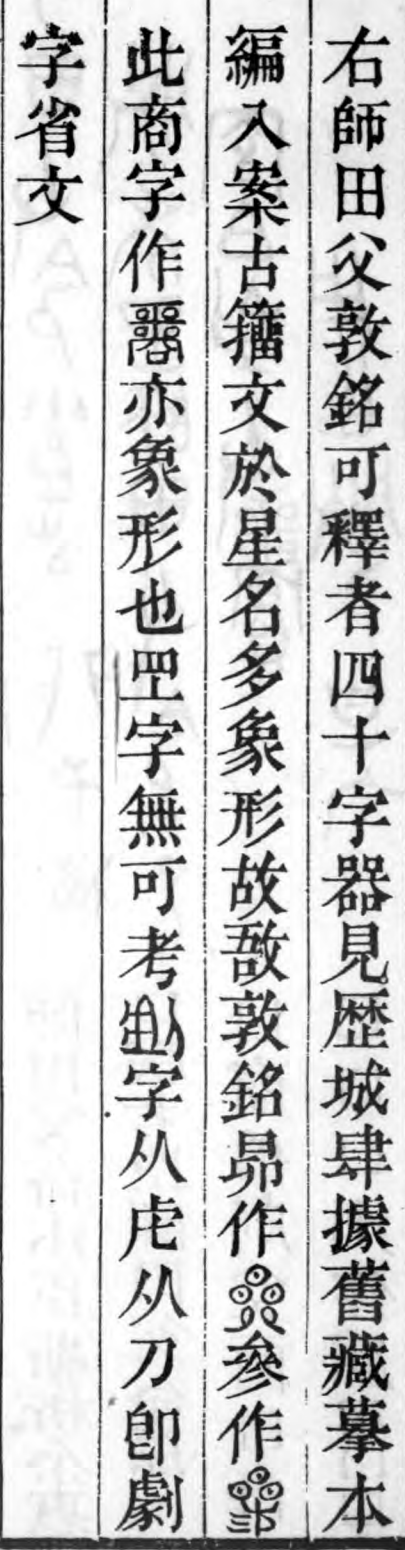 右師田父敦銘可釋者四十字器見歷城肆據舊藏摹本
編入案古籀文於星名多象形故敔敦銘昴作參作
此商字作亦象形也字無可考字从虍从刀卽劇
字省文